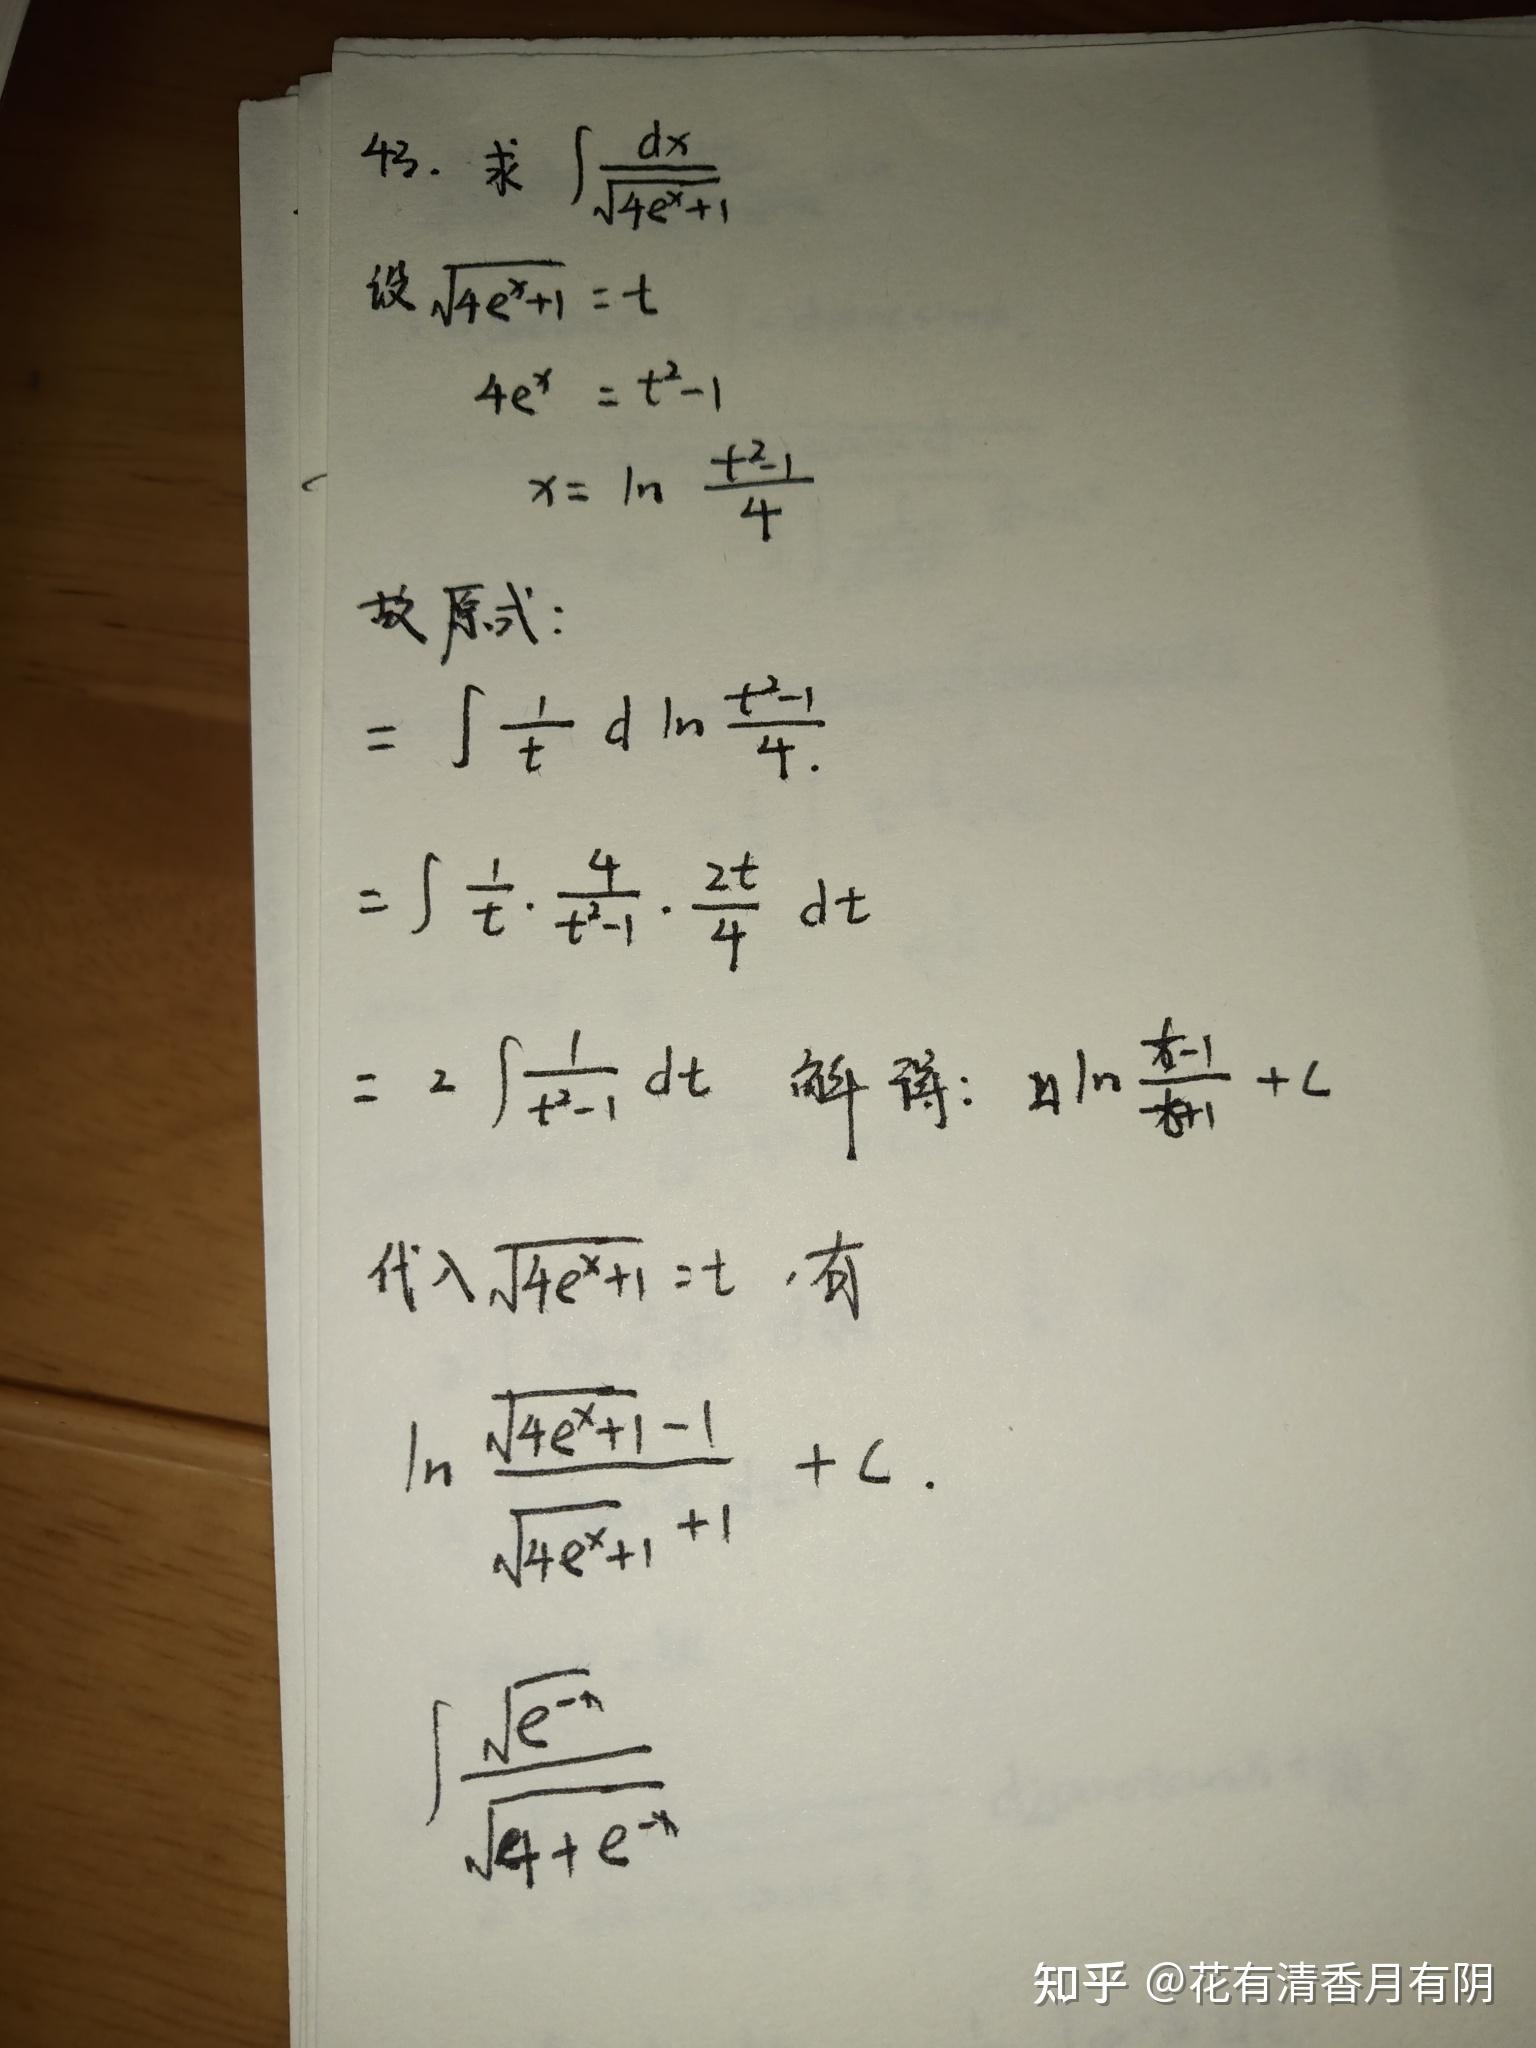 43. 求 ∫ dx/√(4eˣ+1)
设 √(4eˣ+1) = t
4eˣ = t²-1
x = ln (t²-1)/4
故原式:
= ∫ 1/t d ln (t²-1)/4.
= ∫ 1/t · 4/(t²-1) · 2t/4 dt
= 2 ∫ 1/(t²-1) dt 解得: ln (t-1)/(t+1) + C
代入 √(4eˣ+1) = t , 有
ln (√(4eˣ+1) -1)/(√(4eˣ+1) +1) + C .
∫ √(e⁻ˣ)/√(4+e⁻ˣ)
知乎 @花有清香月有阴